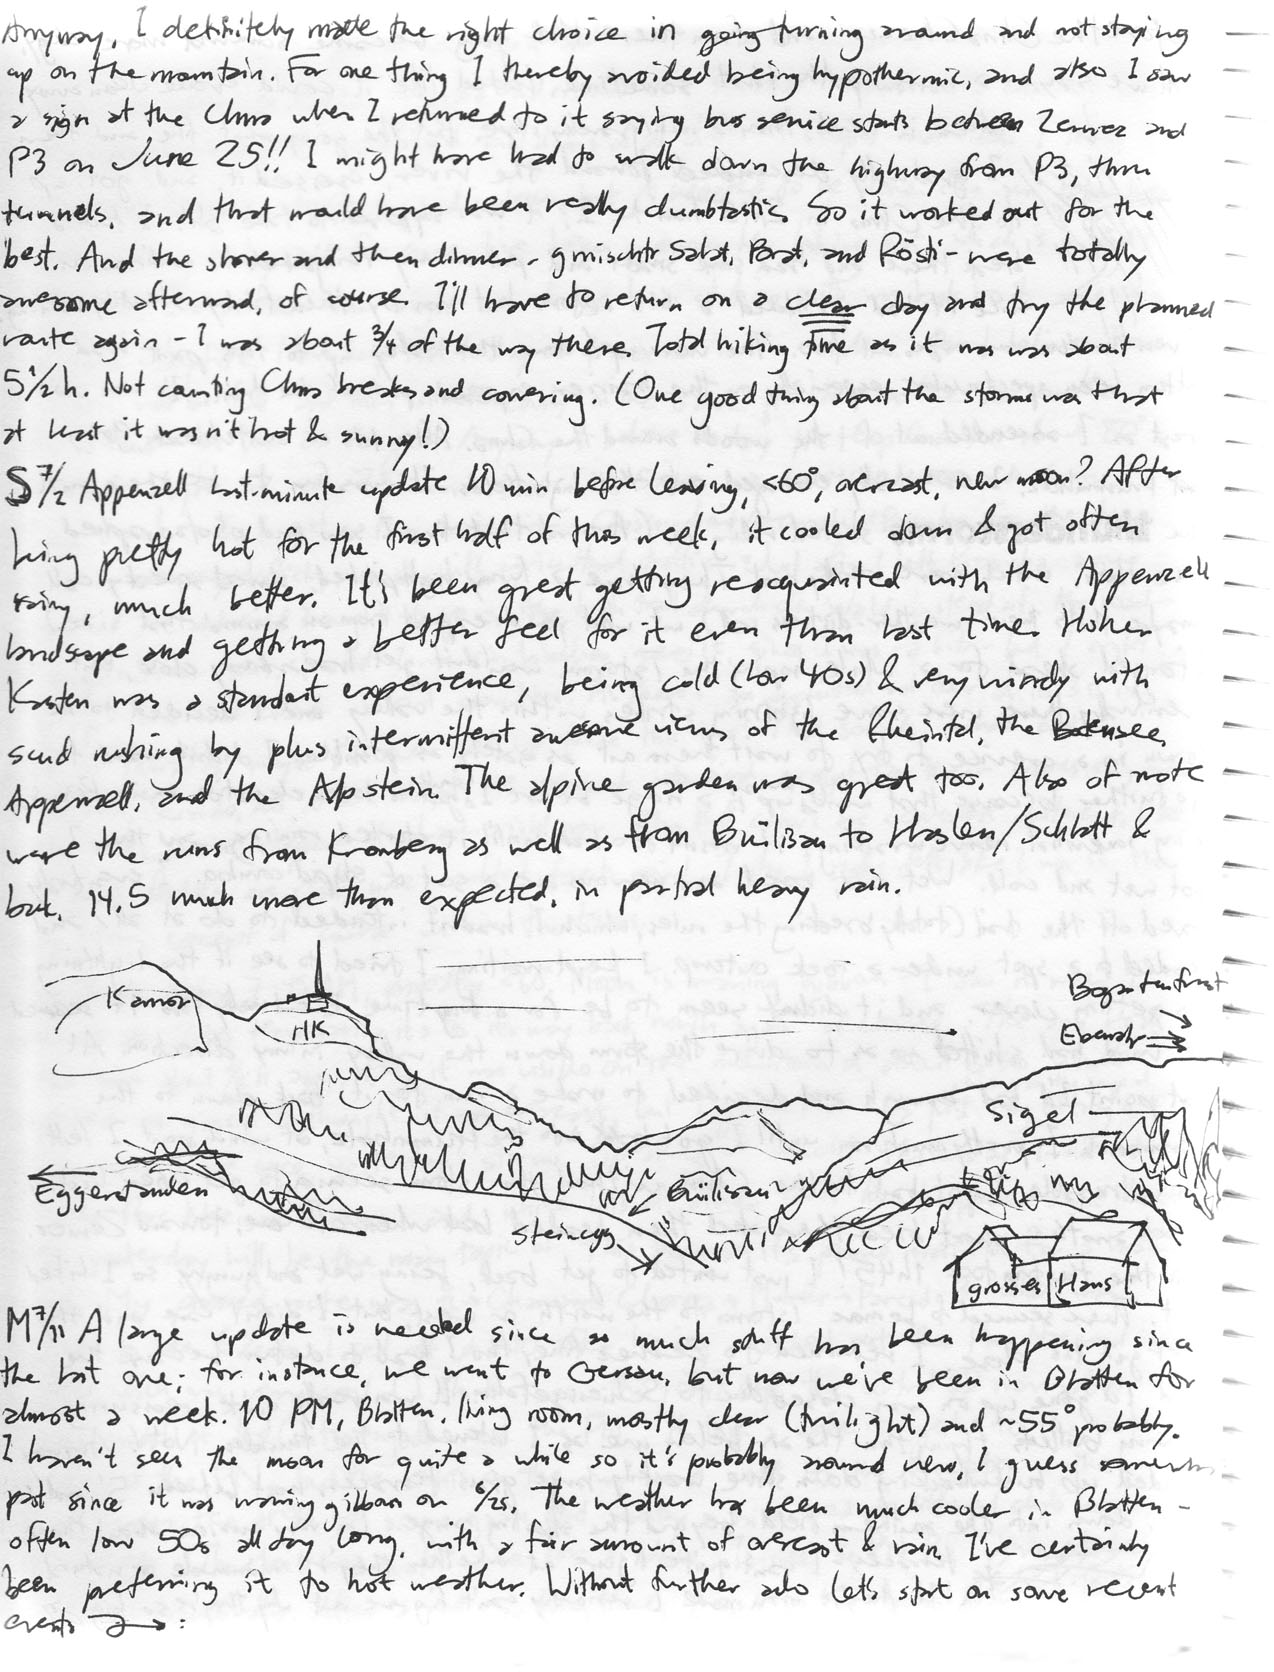 Anyway, I definitely made the right choice in going turning around and not staying
up on the mountain. For one thing I thereby avoided being hypothermic, and also I saw
a sign at the Chna when I returned to it saying bus service starts between Zeneez and
P3 on June 25!! I might have had to walk down the highway from P3, thru
tunnels, and that would have been really dumbtastic. So it worked out for the
best. And the shower and then dinner - gmischtr Salat, Brat, and Rösti - were totally
awesome afterward, of course. I'll have to return on a clear day and try the planned
route again - I was about 3/4 of the way there. Total hiking time as it was was about
5 1/2 h. Not counting breaks and cowering. (One good thing about the storms was that
at least it wasn't hot & sunny!)
S 7/2 Appenzell last-minute update 10 min before leaving, <60°, overcast, new moon? After
being pretty hot for the first half of this week, it cooled down & got often
rainy, much better. It's been great getting reacquainted with the Appenzell
landscape and getting a better feel for it even than last time. Hoher
Kasten was a standout experience, being cold (low 40s) & very windy with
scud rushing by plus intermittent awesome views of the Rheintal, the Bodensee,
Appenzell, and the Alpstein. The alpine garden was great too. Also of note
were the runs from Kronberg as well as from Brülisau to Haslen/Schlatt &
back. 14.5 much more than expected, in partial heavy rain.
Kamor
HK
Bogartenfirst
Ebenalp
Sigel
Eggerstanden
Brülisau
Steinegg
grosses Haus
M 7/11 A large update is needed since so much stuff has been happening since
the last one; for instance, we went to Gersau, but now we've been in Blatten for
almost a week. 10 PM, Blatten, living room, mostly clear (twilight) and ~55° probably.
I haven't seen the moon for quite a while so it's probably around new, I guess somewhat
past since it was waning gibbous on 6/25. The weather has been much cooler in Blatten -
often low 50s all day long, with a fair amount of overcast & rain. I've certainly
been preferring it to hot weather. Without further ado let's start on some recent
events → :